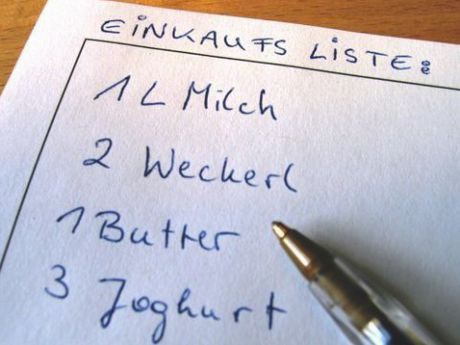 EINKAUFS LISTE:
1 L Milch
2 Weckerl
1 Butter
3 Joghurt